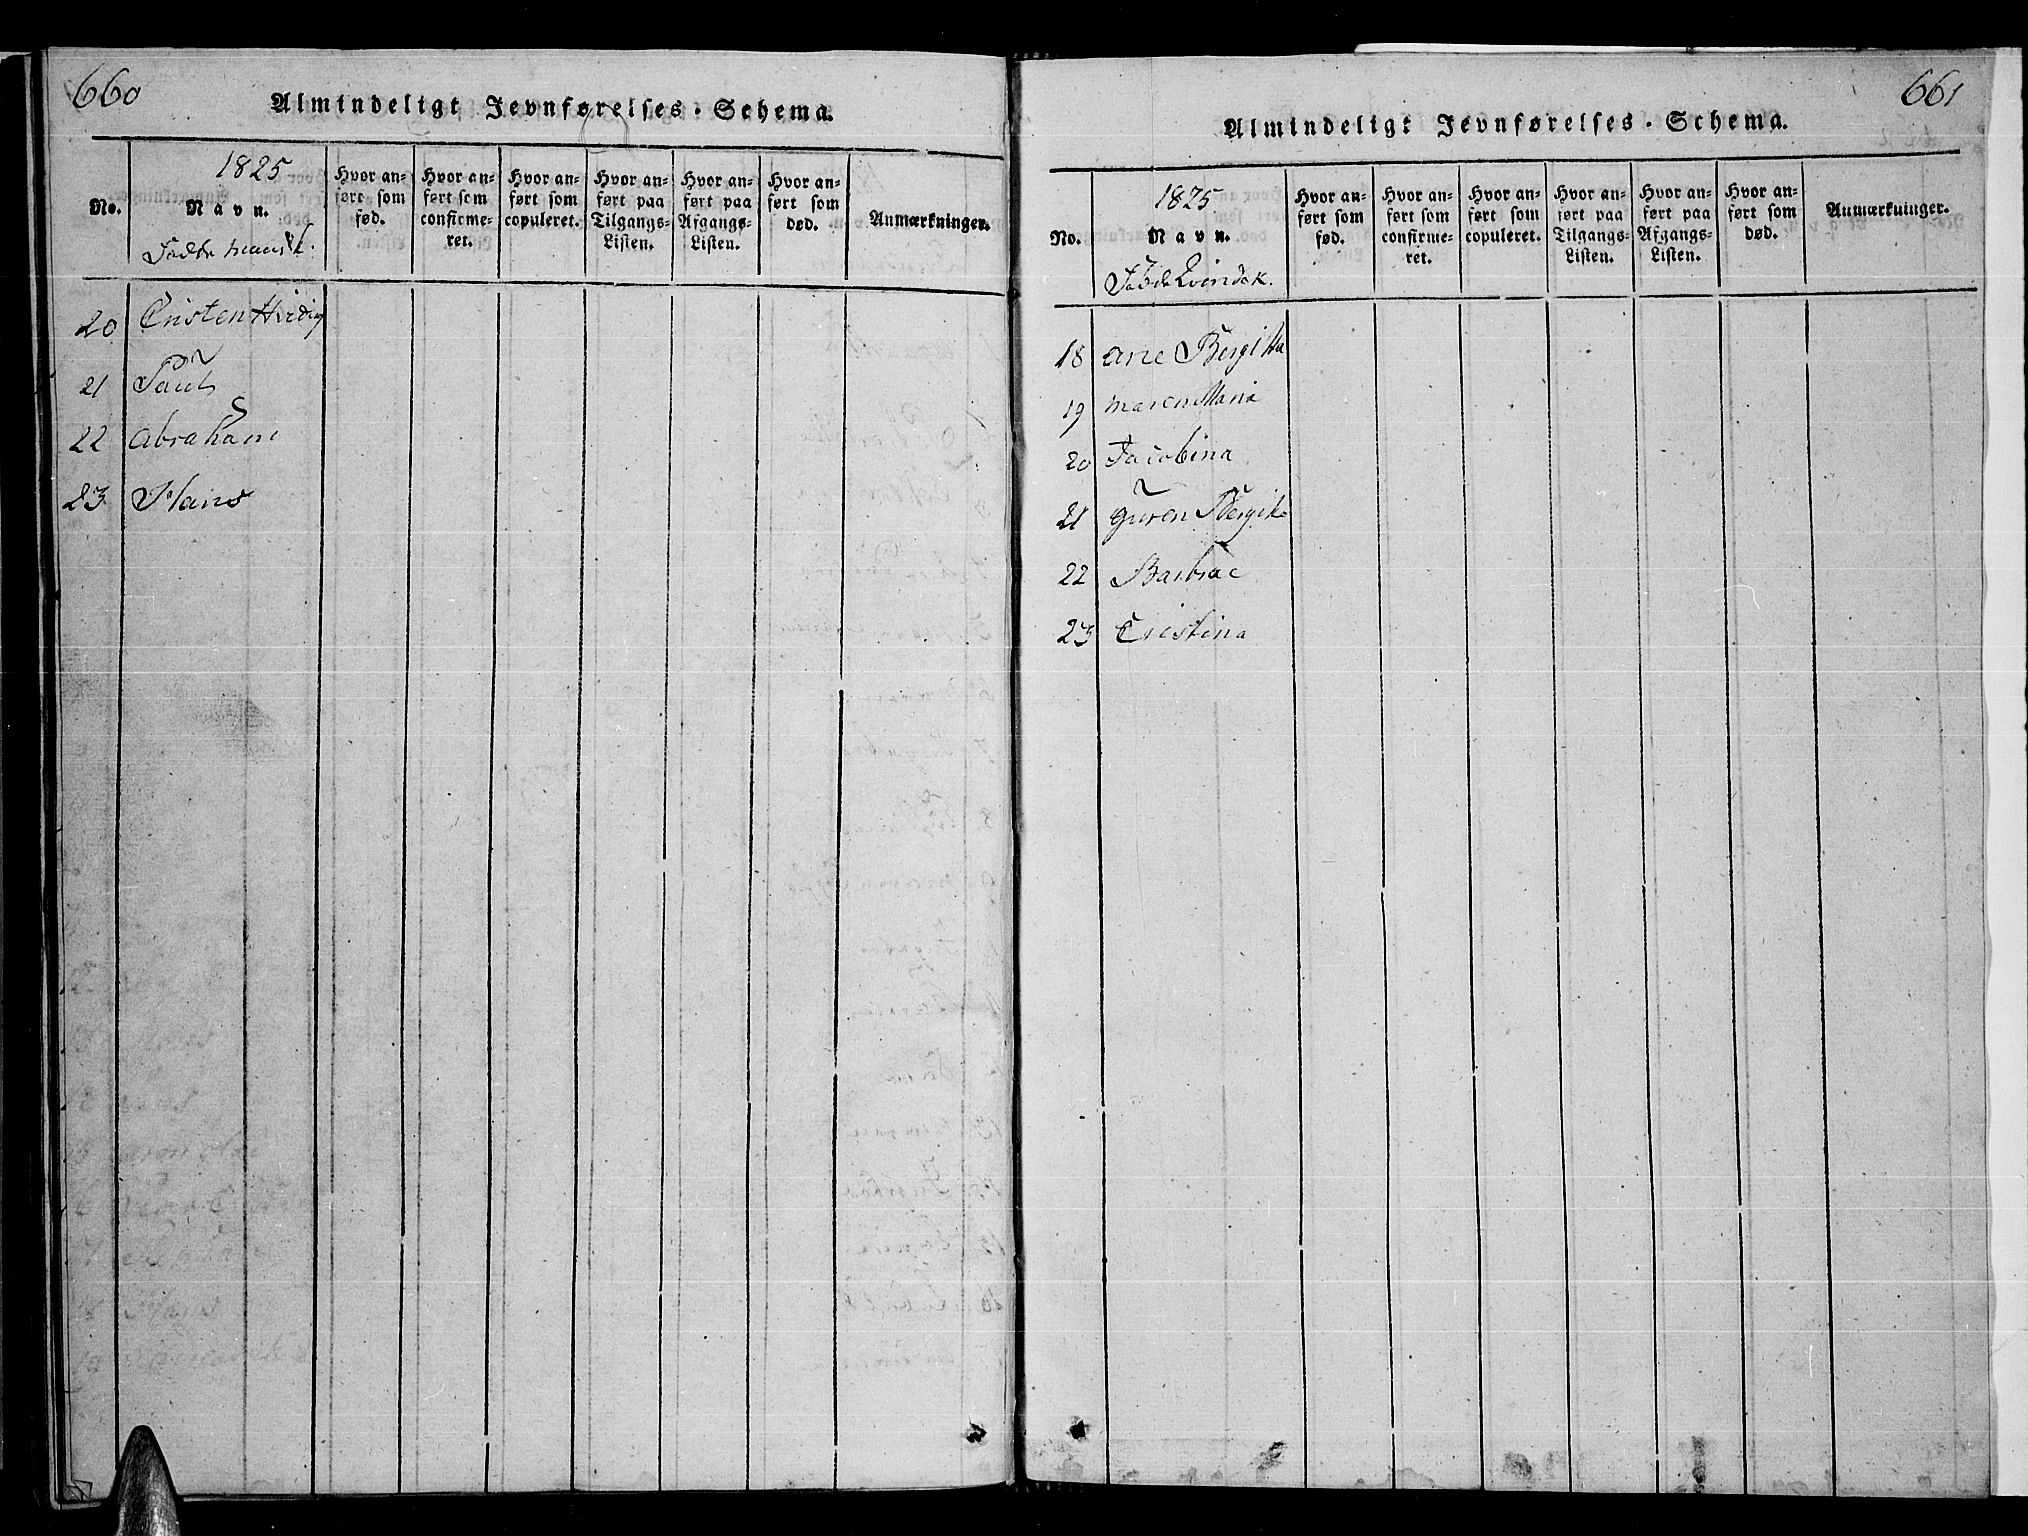 660
Almindeligt Jevnførelses-Schema.
No.
1825
Navn.
Födte mandk.
Hvor anført som fød.
Hvor anført som confirmeret.
Hvor anført som copuleret.
Hvor anført paa Tilgangs-Listen.
Hvor anført paa Afgangs-Listen.
Hvor anført som død.
Anmærkninger.
20 Cristen
21 Paul
22 Abraham
23 Hans
661
Almindeligt Jevnførelses-Schema.
No.
1825
Navn.
Föde Qvindek.
Hvor anført som fød.
Hvor anført som confirmeret.
Hvor anført som copuleret.
Hvor anført paa Tilgangs-Listen.
Hvor anført paa Afgangs-Listen.
Hvor anført som død.
Anmærkninger.
18 ane Bergitta
19 maren Maria
20 Jacobina
21 guren Bergita
22 Barbrae
23 Cristina